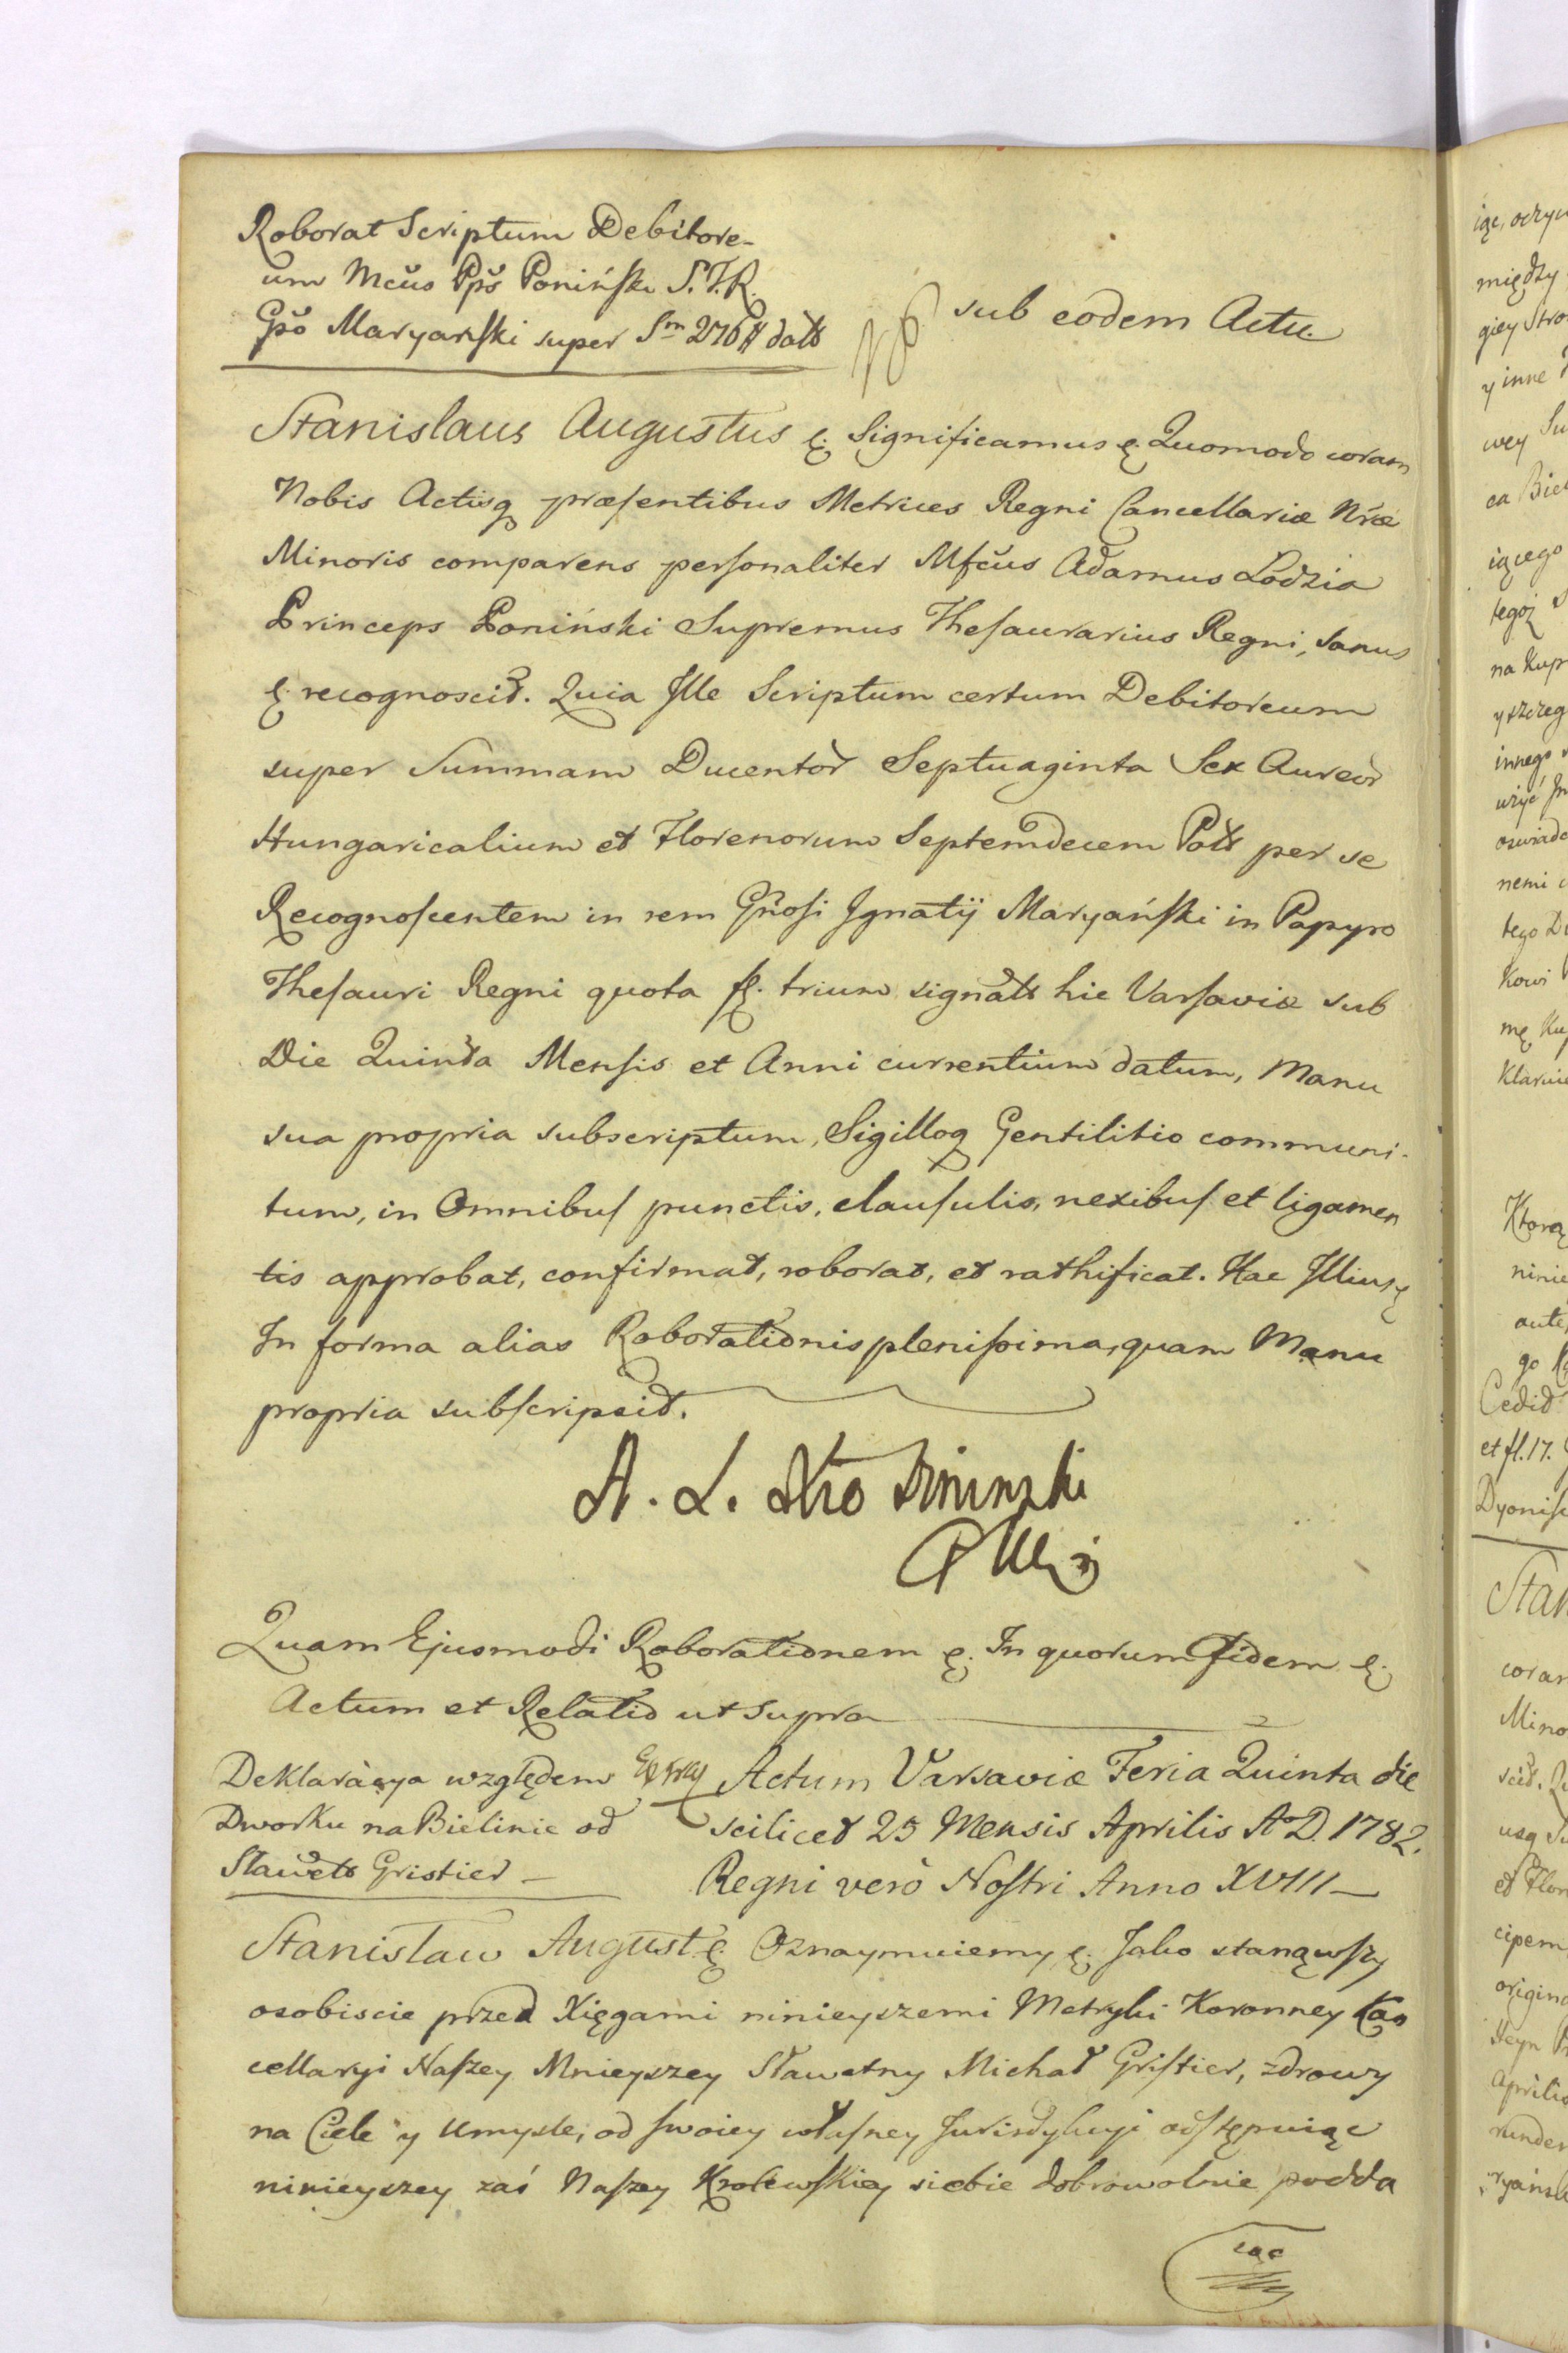 Roborat Scriptum Debitore-
um Mcus Pps Poniński S.T.R.
Gso Maryański super Sm 276 # dats
sub eodem Actu.
Stanislaus Augustus &. Significamus &. Quomodo coram
Nobis Actisq præsentibus Metrices Regni Cancellariæ Nræ
Minoris comparens personaliter Mfcus Adamus Lodzia
Princeps Poniński Supremus Thesaurarius Regni, sanus
&. recognoscit. Quia Ille Scriptum certum Debitoreum
super Summam Ducentor Septuaginta Sex Aureor
Hungaricalium et Florenorum Septemdecem Polls per se
Recognoscentem in rem Gnosi Ignatij Maryański in Papyro
Thesauri Regni quota fl. trium signats hic Varsaviæ sub
Die Quinta Mensis et Anni currentium datum, Manu
sua propria subscriptum, Sigilloq Gentilitio communi-
tum, in Omnibus punctis, clausulis, nexibus et ligamen
tis approbat, confirmat, roborat, et rathificat. Hac Illius &
In forma alias Roborationis plenissima, quam Manu
propria subscripsit.
A. L. Poninski
Quam Ejusmodi Roborationem &. In quorum fidem &.
Actum et Relatio ut supra
Deklaracya względem
Dworku na Bielinie od
Sławets Gristier
Actum Varsaviæ Feria Quinta die
scilicet 25 Mensis Aprilis A D. 1782.
Regni verò Nostri Anno XVIII
Stanisław August &. Oznaymuiemy &. Jako stanąwszy
osobiscie przed Xięgami ninieyszemi Metryki Koronney Kan
cellaryi Naszey Mnieyszey Sławetny Michał Gristier, zdrowy
na Ciele y Umysle, od swoiey własney Jurisdykcyi odstępuiąc
ninieyszey zaś Naszey Krolewskiey siebie dobrowolnie podda
iąc